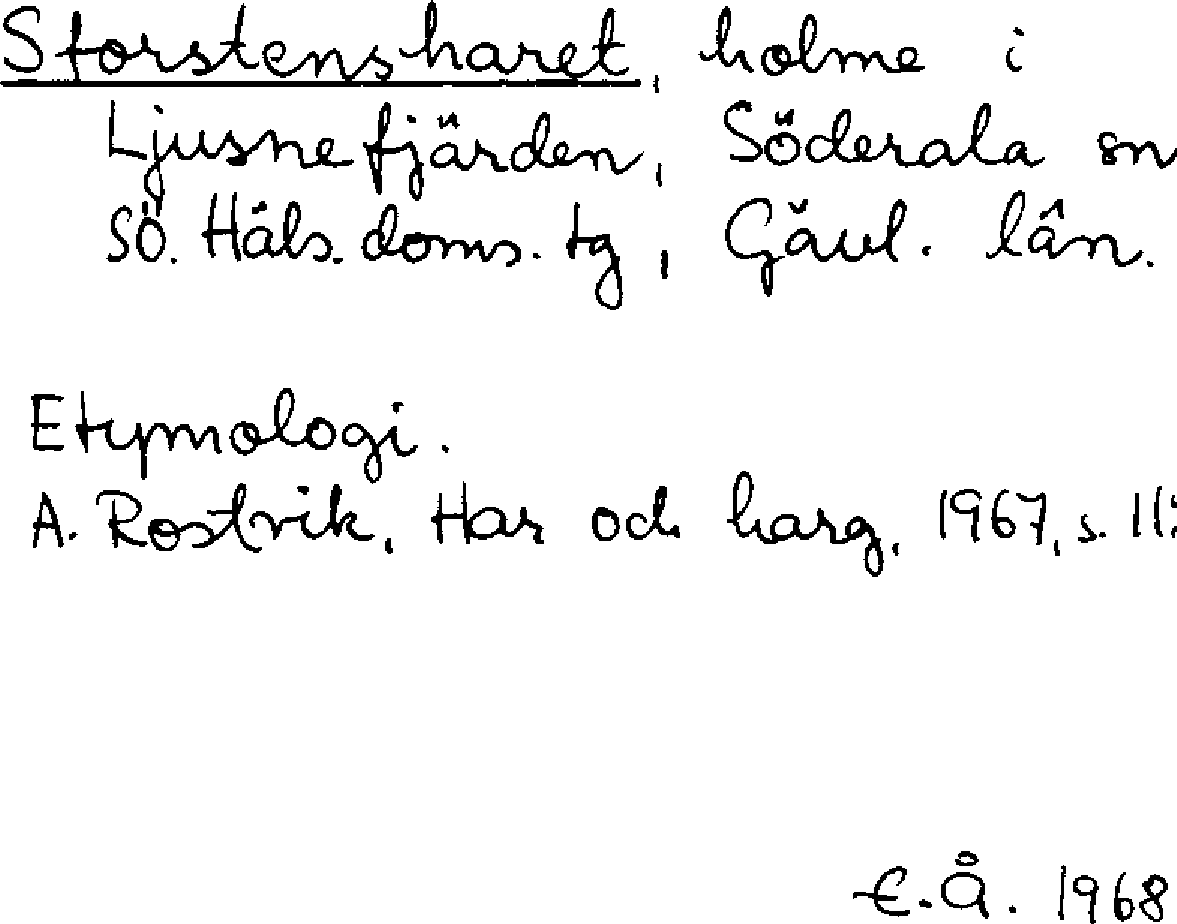 Storstensharet, holme i
Ljusnefjärden, Söderala sn
Sö. Häls. doms. tg, Gävl. län.
Etymologi.
A. Rostvik, Har och harg, 1967, s. 11:
E.Å. 1968